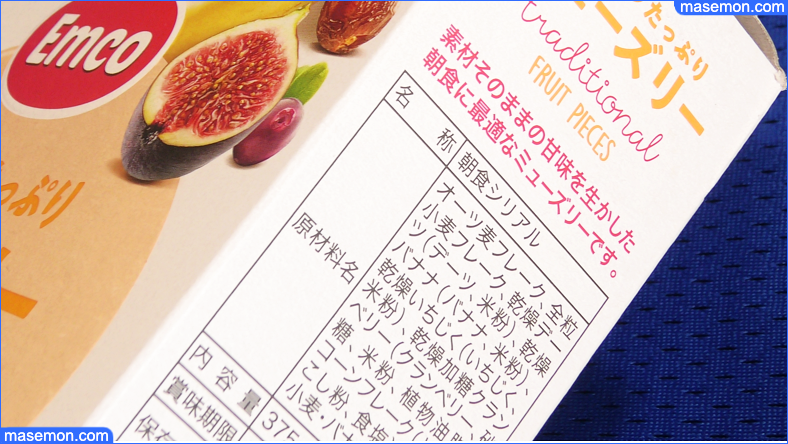 masemon.com
masemon.com
Emco
たっぷり
ューズリー
traditional
FRUIT PIECES
素材そのままの甘味を生かした
朝食に最適なミューズリーです。
名称 朝食シリアル
原材料名
オーツ麦フレーク、全粒
小麦フレーク、乾燥デー
ツ(デーツ、米粉)、乾燥
バナナ(バナナ、米粉)、
乾燥いちじく(いちじく、
米粉)、乾燥加糖クラン
ベリー(クランベリー、砂
糖、米粉、植物油脂
コーンフレーク(
こし粉、食塩
小麦・バナ
内容量 375
賞味期限
保存
っぷり
masemon.com
masemon.com